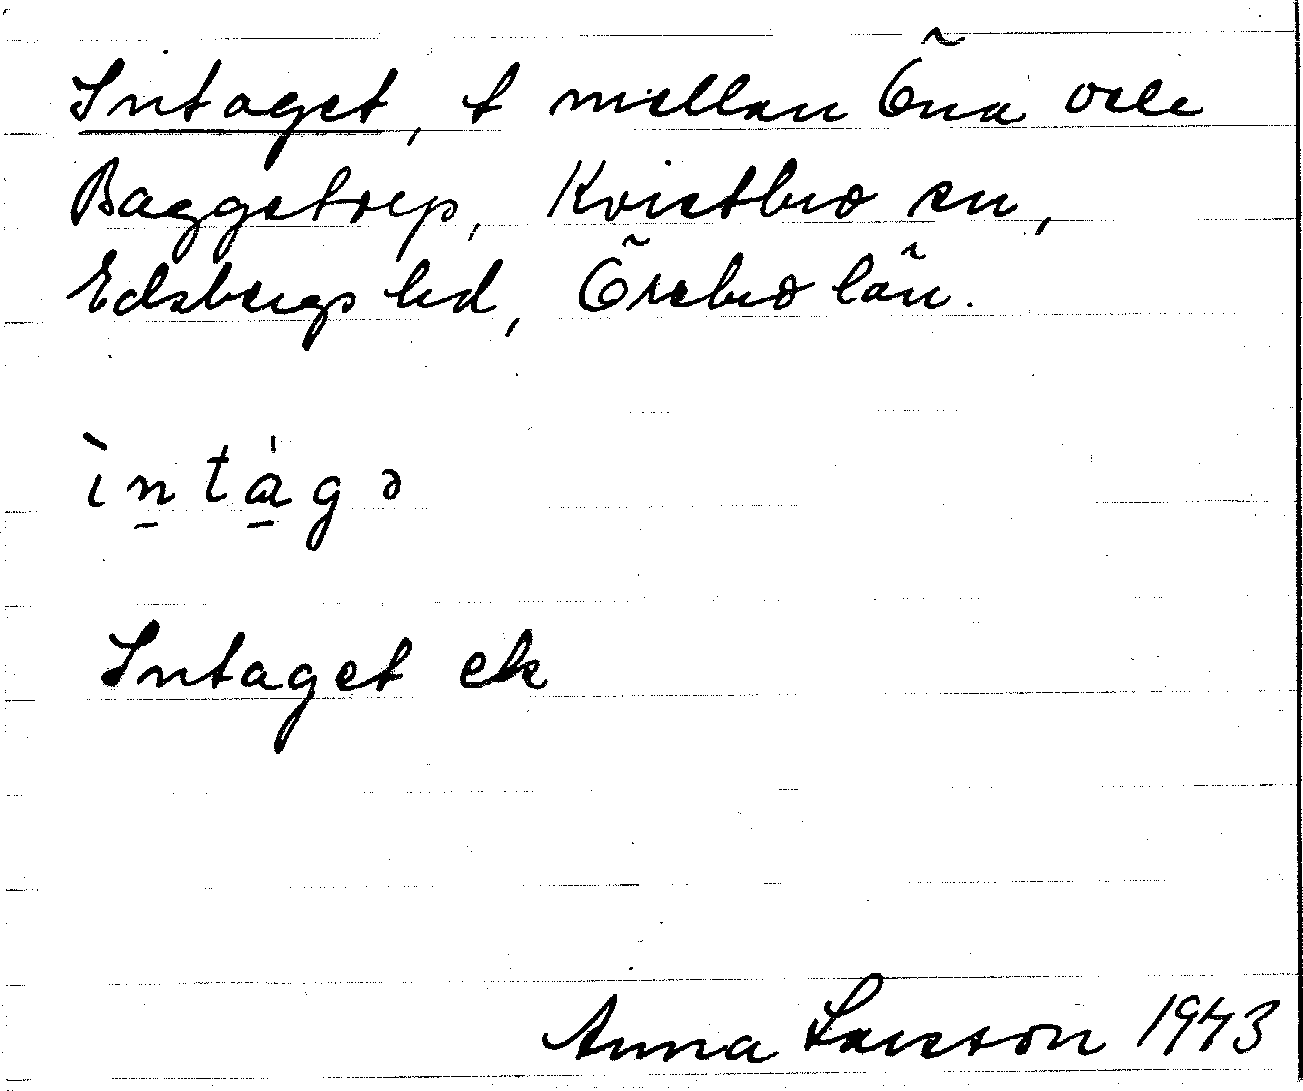 Intaget, t mellan Öna och
Baggetorp, Kvistbro sn,
Edsbergs hd, Örebro län.
ìn̠tà̠gə
Intaget ek
Anna Larsson 1943